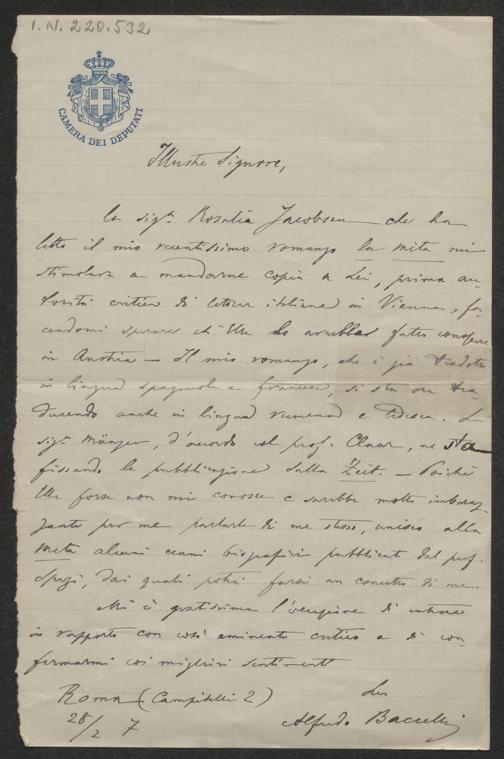 I.N. 220.532
CAMERA DEI DEPUTATI
Illustre Signore,
La sigª Rosalia Jacobsen che ha
letto il mio recentissimo romanzo la meta mi
stimolava a mandarne copia a Lei, prima au-
torità critica di lettere italiane in Vienna, fa-
cendomi sperare ch'Ella lo avrebbe fatto conoscere
in Austria — Il mio romanzo, che è già tradotto
in lingua spagnola e francese, si sta ora tra-
ducendo anche in lingua rumena e tedesca. La
sigª Mänger, d'accordo col prof. Claar, ne sta
fissando la pubblicazione sulla Zeit. — Poichè
Ella forse non mi conosce e sarebbe molto imbaraz-
zante per me parlarle di me stesso, unisco alla
meta alcuni cenni biografici pubblicati dal prof.
Spezi, dai quali potrà farsi un concetto di me.
Mi è gratissima l'occasione di entrare
in rapporto con così eminente critico e di con-
fermarmi coi migliori sentimenti
Roma (Campitelli 2)
28/2 7
Suo
Alfredo Baccelli